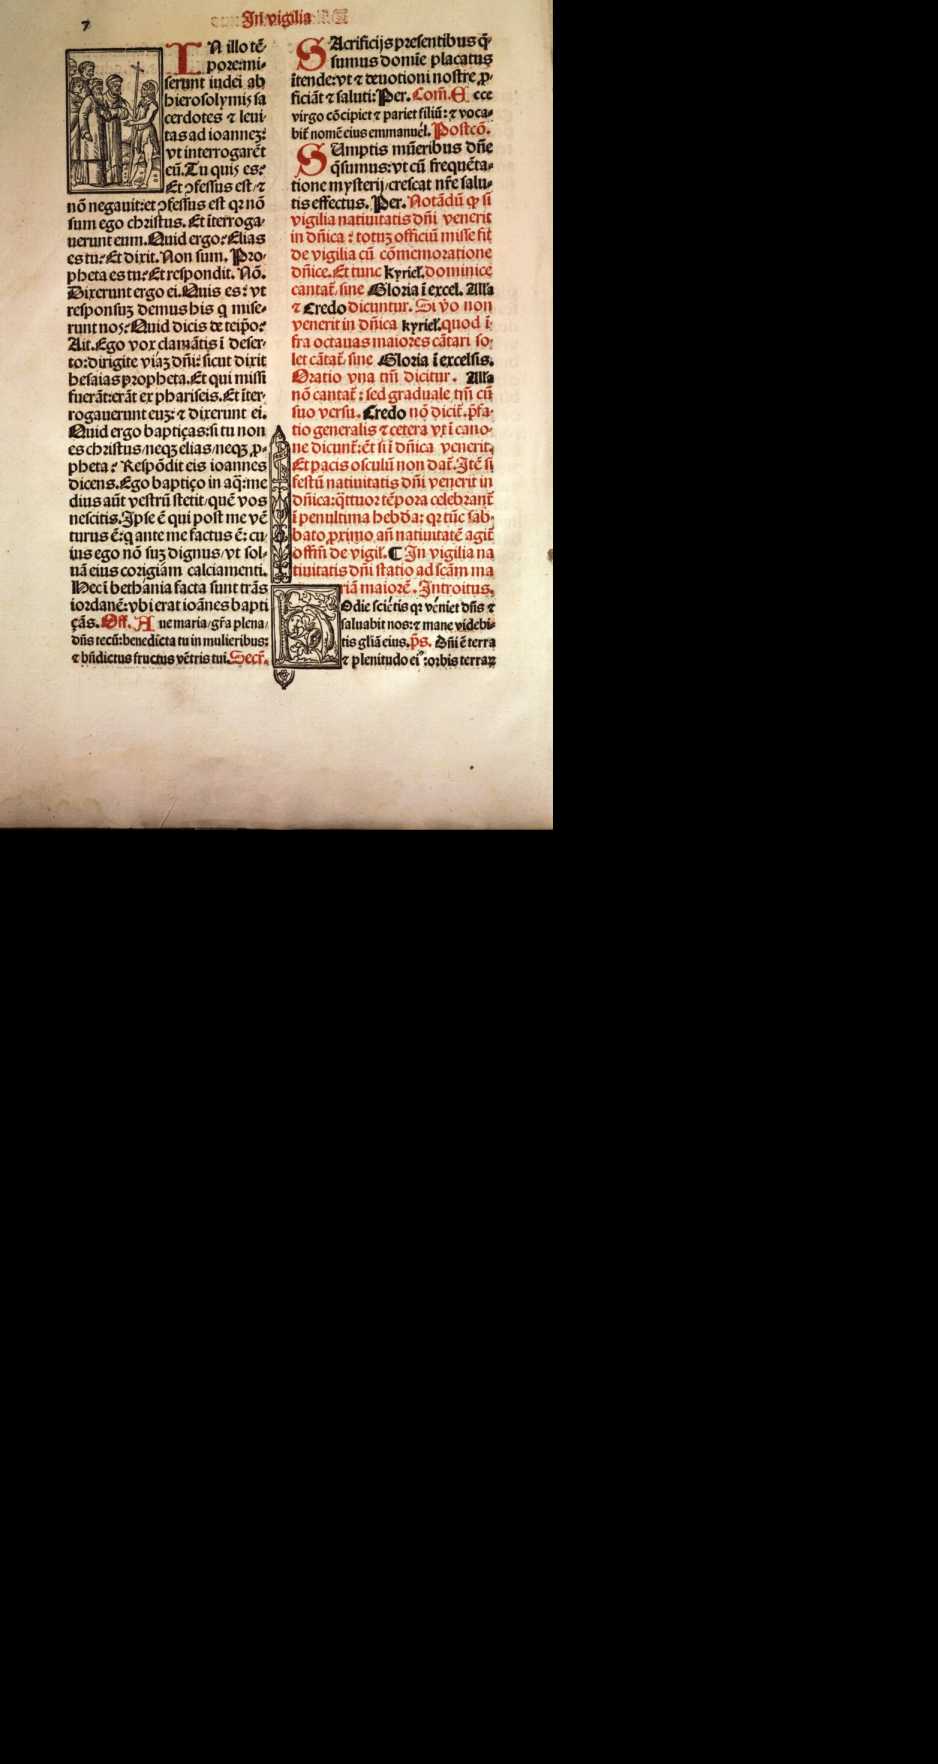 7
In vigilia
IN illo tẽ-
pore:mi-
serunt iudei ab
hierosolymis sa
cerdotes ⁊ leui-
tas ad ioanneꝫ:
vt interrogarẽt
eũ. Tu quis es?
Et ꝯfessus est/⁊
nõ negauit:et ꝯfessus est qꝛ nõ
sum ego christus. Et ĩterroga-
uerunt eum. Quid ergo? Elias
es tu? Et dixit. Non sum. Pro-
pheta es tu? Et respondit. Nõ.
Dixerunt ergo ei. Quis es? vt
responsuꝫ demus his q̇ mise-
runt nos? Quid dicis de teip̃o?
Ait. Ego vox clamãtis ĩ deser-
to:dirigite viaꝫ dñi: sicut dixit
hesaias propheta. Et qui missi
fuerãt:erãt ex phariseis. Et ĩter-
rogauerunt euꝫ: ⁊ dixerunt ei.
Quid ergo baptiças:si tu non
es christus/neqꝫ elias/neqꝫ ꝓ-
pheta? Respõdit eis ioannes
dicens. Ego baptiço in aq̃:me
dius aũt vestrũ stetit/quẽ vos
nescitis. Ipse ẽ qui post me vẽ
turus ẽ:q̇ ante me factus ẽ: cu
ius ego nõ suꝫ dignus/vt sol-
uã eius corigiam calciamenti.
Hec ĩ bethania facta sunt trãs
iordanẽ:vbi erat ioãnes bapti
çãs. Off. Aue maria/gr̃a plena/
dñs tecũ:benedicta tu in mulieribus:
⁊ bñdictus fructus vẽtris tui. Secr̃.
SAcrificijs presentibus q̃-
sumus domie placatus
ĩtende:vt ⁊ deuotioni nostre ꝓ-
ficiãt ⁊ saluti: Per. Com̃. Ecce
virgo cõcipiet ⁊ pariet filiũ: ⁊ voca-
bit̃ nomẽ eius emmanuel. Postcõ.
SUmptis mũeribus dñe
q̃sumus:vt cũ frequẽta-
tione mysterij/crescat nr̃e salu-
tis effectus. Per. Notãdũ ꝙ si
vigilia natiuitatis dñi venerit
in dñica: totuꝫ officiũ misse fit
de vigilia cũ cõmemoratione
dñice. Et tunc kyriel̃. dominice
cantat̃/sine Gloria ĩ excel. All̃a
⁊ Credo dicuntur. Si ṽo non
venerit in dñica kyriel̃. quod ĩ-
fra octauas maiores cãtari so-
let cãtat̃/sine Gloria ĩ excelsis.
Oratio vna tm̃ dicitur. All̃a
nõ cantat̃: sed graduale tm̃ cũ
suo versu. Credo nõ dicit̃. p̃fa-
tio generalis ⁊ cetera vt ĩ cano-
ne dicunt̃: ẽt si ĩ dñica venerit.
Et pacis osculũ non dat̃. Itẽ si
festũ natiuitatis dñi venerit in
dñica: q̃ttuor tẽpora celebrant̃
ĩ penultima hebd̃a: qꝛ tũc sab-
bato ꝓximo añ natiuitatẽ agit̃
offm̃ de vigil̃. ¶ In vigilia na
tiuitatis dñi statio ad scãm ma
riã maiorẽ. Introitus.
HOdie sciẽtis qꝛ veniet dñs ⁊
saluabit nos: ⁊ mane videbi-
tis gl̃iã eius. p̃s. Dñi ẽ terra
⁊ plenitudo eiꝰ: orbis terraꝝ